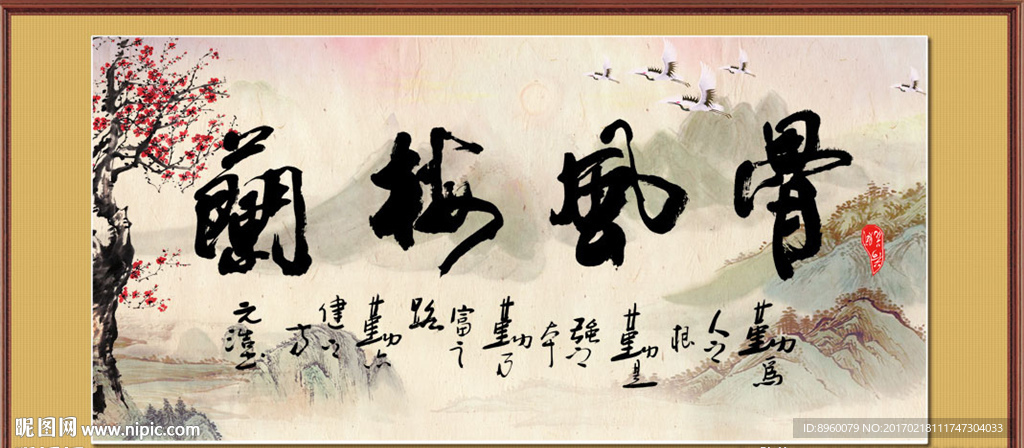 蘭梅風骨
勤為人之根勤是強之本勤乃富之路勤亦健之方
昵图网 www.nipic.com
ID:8960079 NO:20170218111747304033